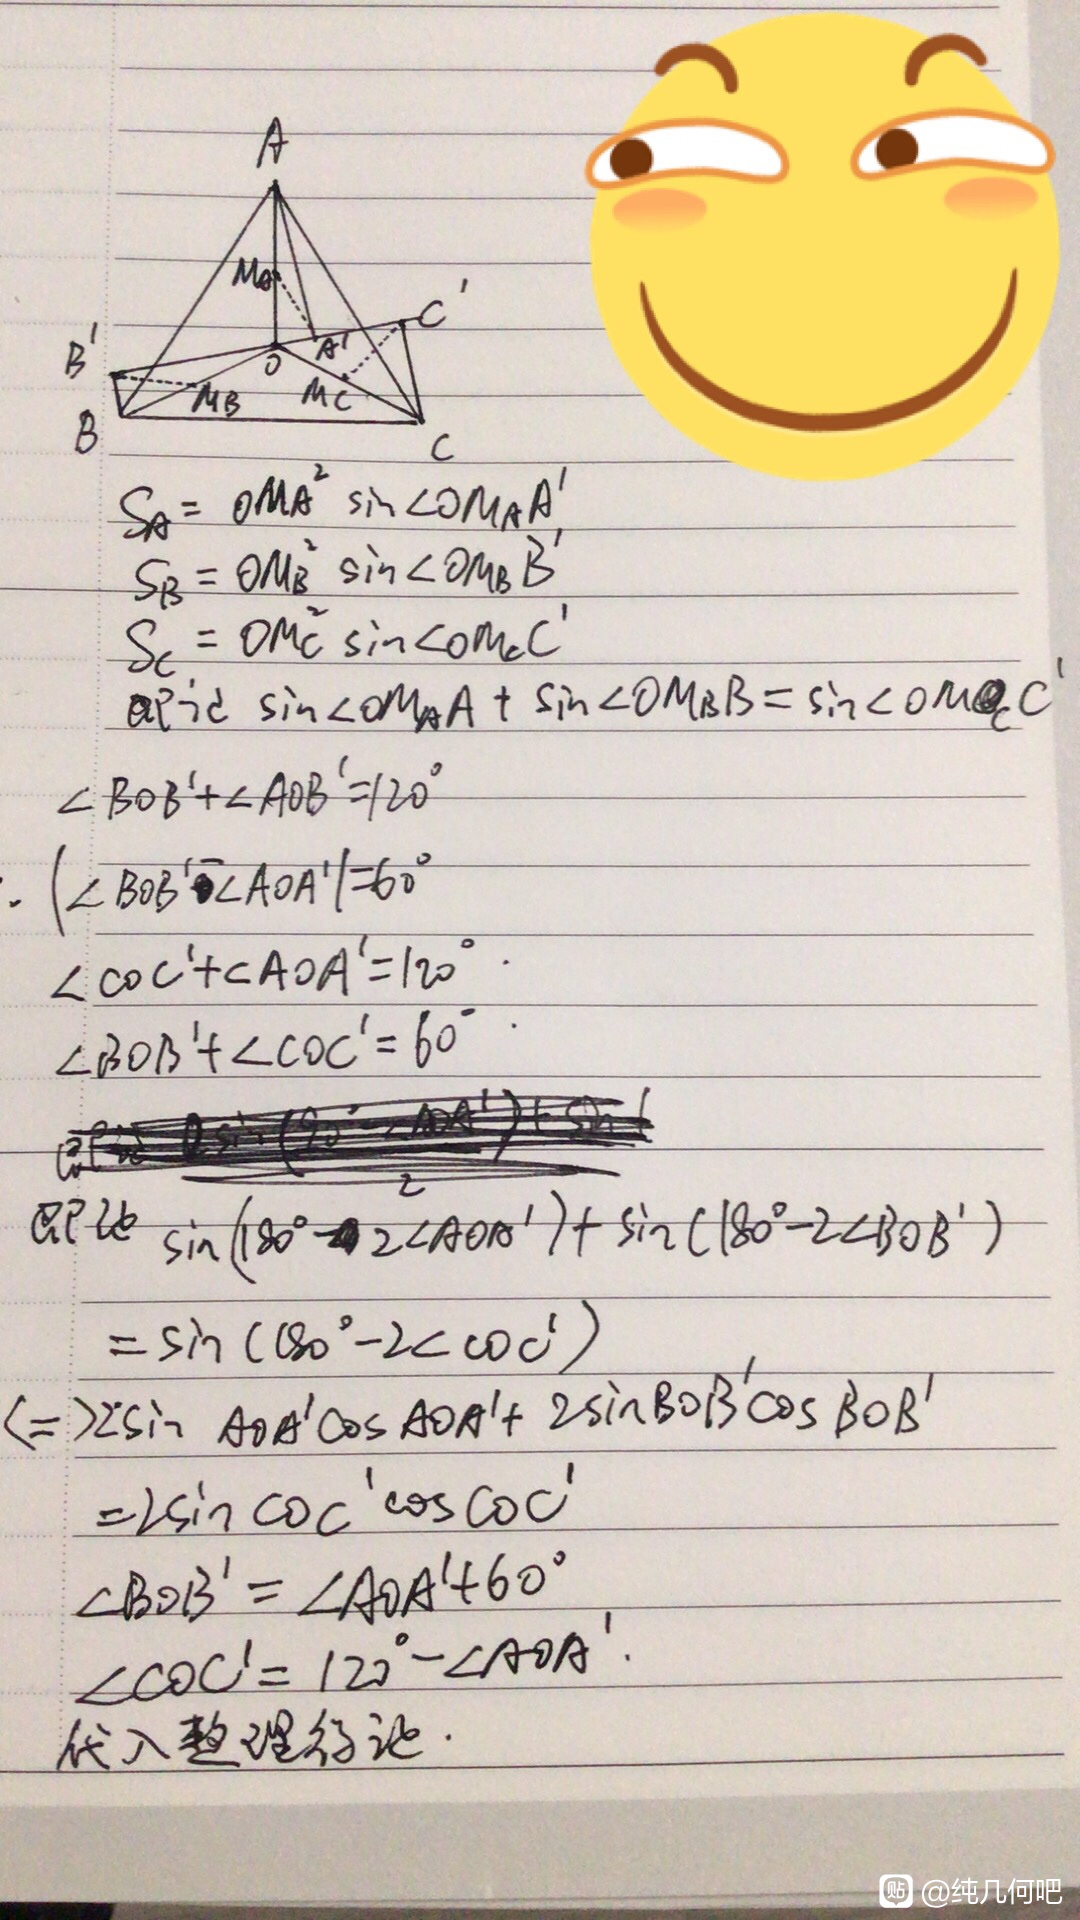 A
MA
C'
B'
A'
O
MB
MC
B
C
SA = OMA² sin∠OMAA'
SB = OMB² sin∠OMBB'
SC = OMC² sin∠OMCC'
即证 sin∠OMAA + sin∠OMBB = sin∠OMCC'
∠BOB'+∠AOB'=120°
|∠BOB'-∠AOA'|=60°
∠COC'+∠AOA'=120°.
∠BOB'+∠COC'=60°.
即证 sin(180°-2∠AOA')+sin(180°-2∠BOB')
=sin(180°-2∠COC')
<=>2sin AOA'cos AOA'+ 2sinBOB'cos BOB'
=2sin COC'cos COC'
∠BOB'=∠AOA'+60°
∠COC'=120°-∠AOA'.
代入整理得证.
贴 @纯几何吧